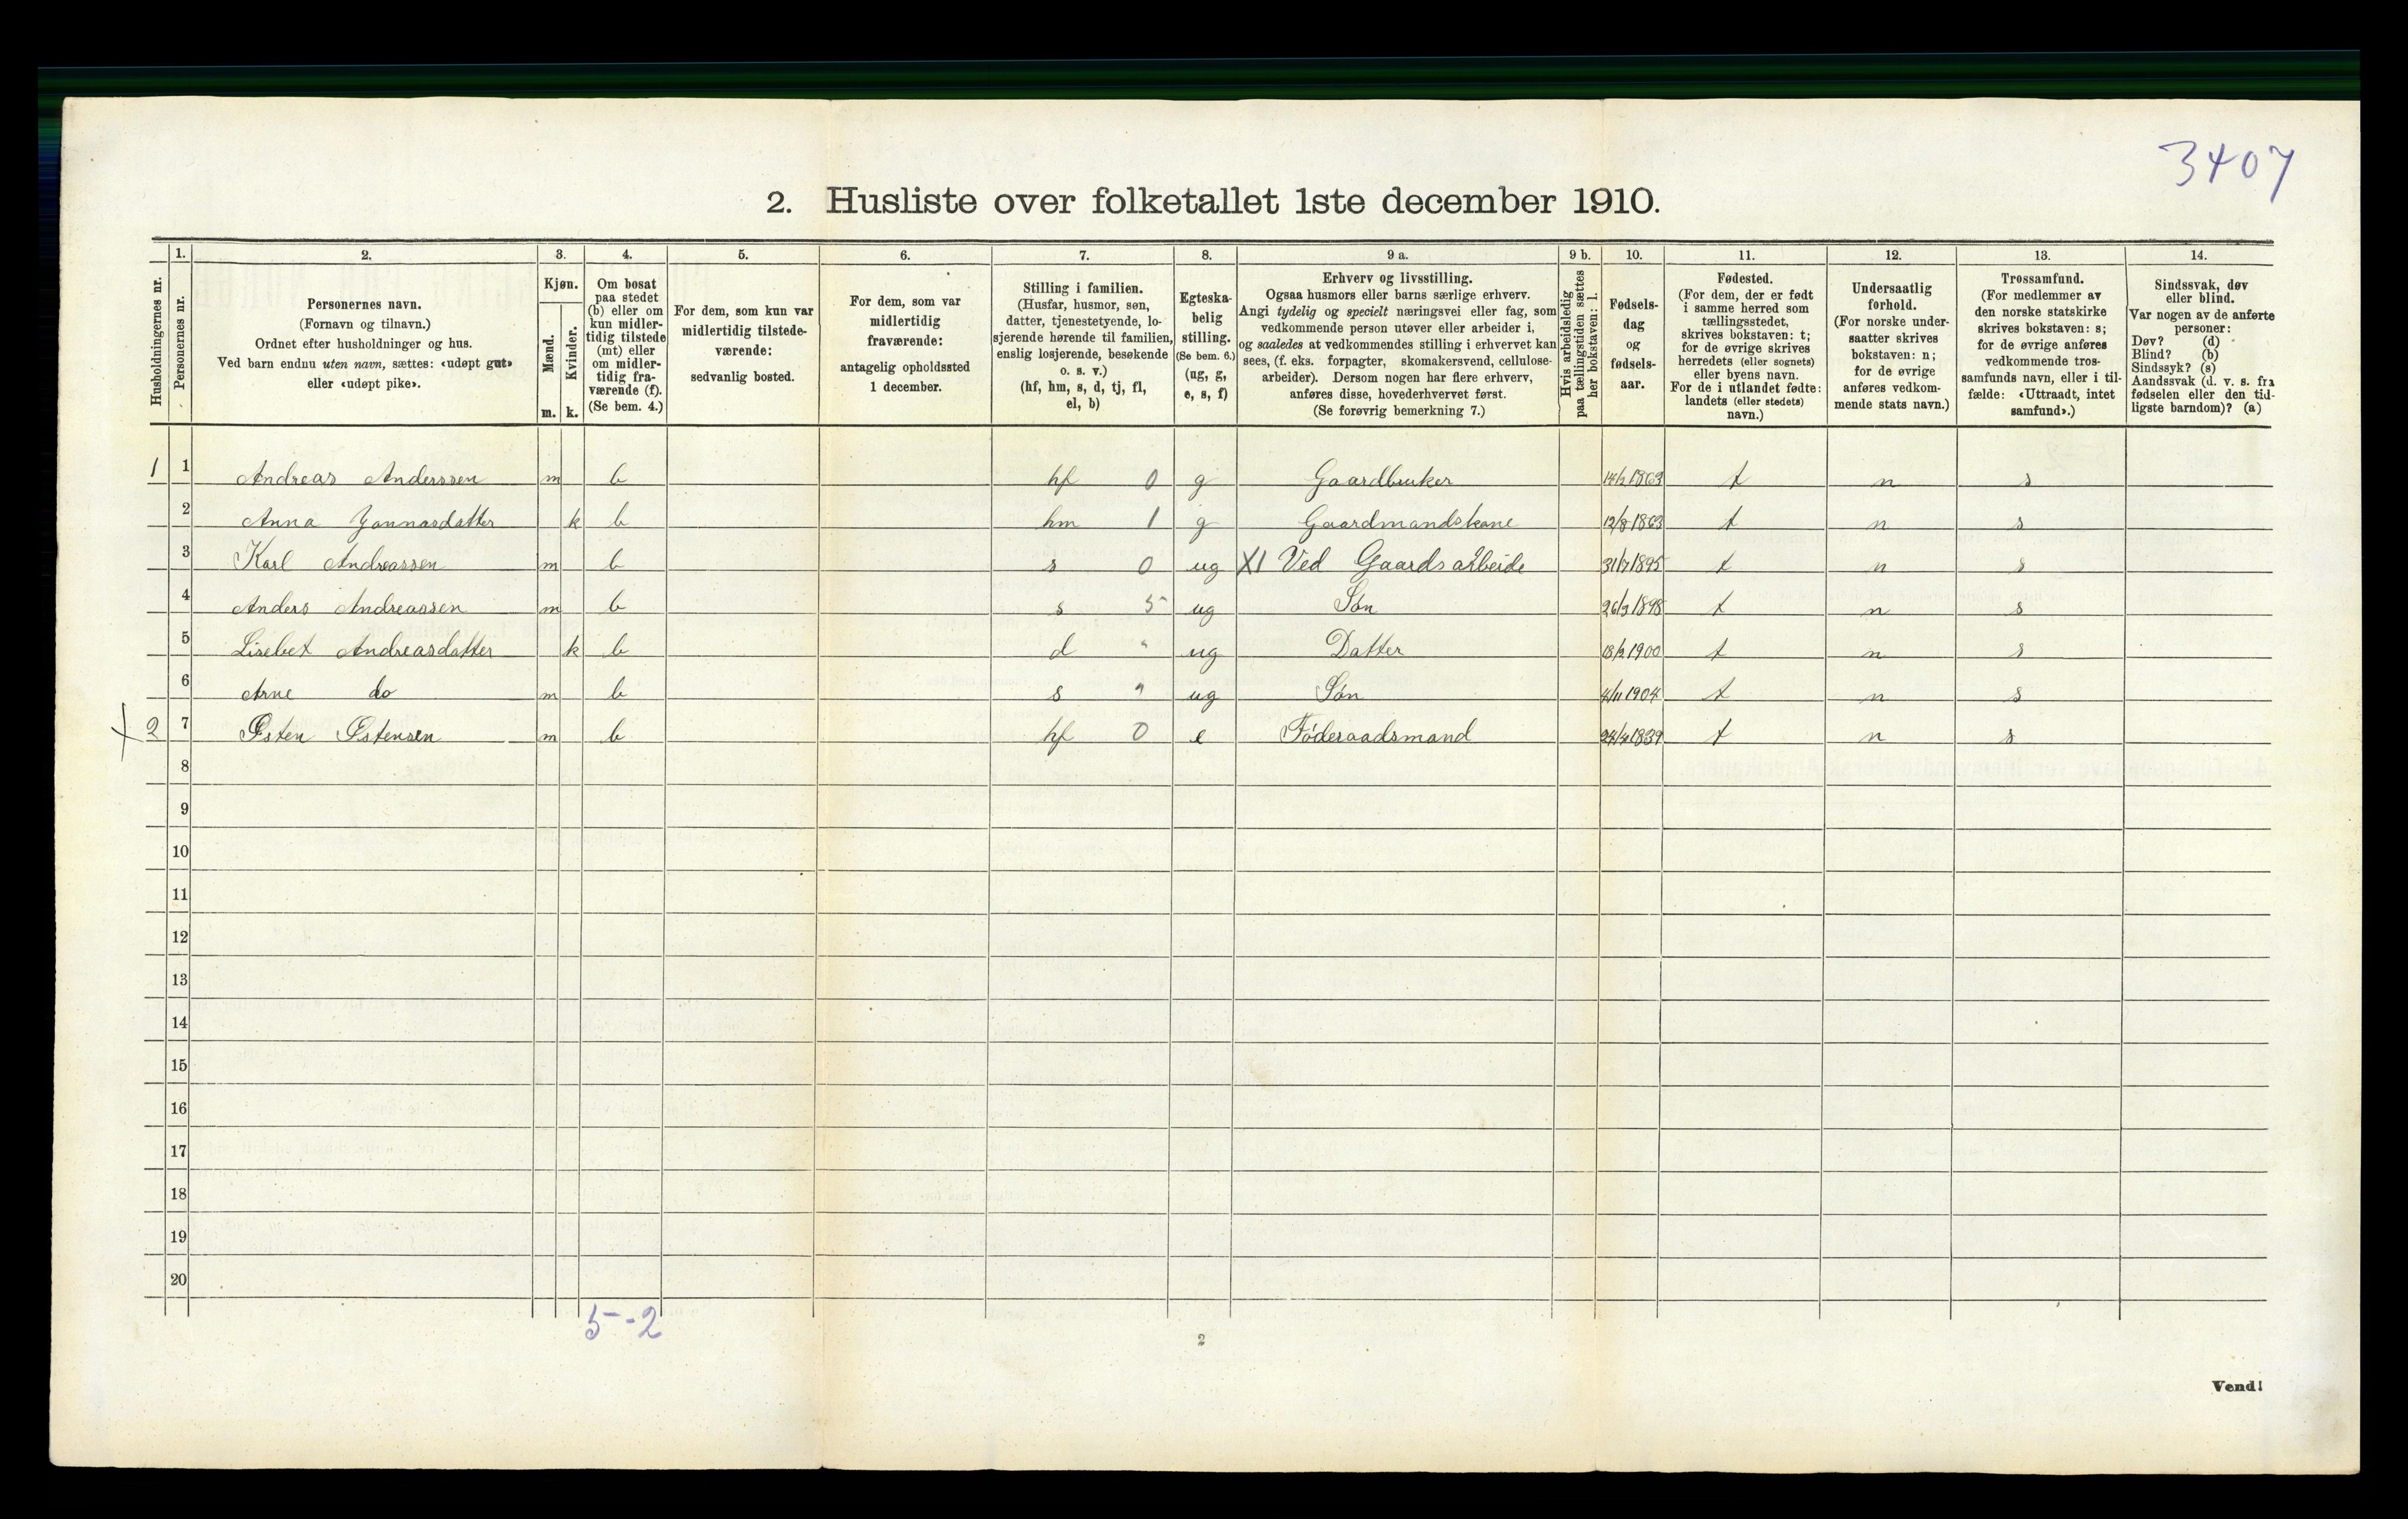 3407
2. Husliste over folketallet 1ste december 1910.
Husholdningernes nr.
1.
Personernes nr.
2.
Personernes navn.
(Fornavn og tilnavn.)
Ordnet efter husholdninger og hus.
Ved barn endnu uten navn, sættes: «udøpt gut»
eller «udøpt pike».
3.
Kjøn.
Mænd.
Kvinder.
m. k.
4.
Om bosat
paa stedet
(b) eller om
kun midler-
tidig tilstede
(mt) eller
om midler-
tidig fra-
værende (f).
(Se bem. 4.)
5.
For dem, som kun var
midlertidig tilstede-
værende:
sedvanlig bosted.
6.
For dem, som var
midlertidig
fraværende:
antagelig opholdssted
1 december.
7.
Stilling i familien.
(Husfar, husmor, søn,
datter, tjenestetyende, lo-
sjerende hørende til familien,
enslig losjerende, besøkende
o. s. v.)
(hf, hm, s, d, tj, fl,
el, b)
8.
Egteska-
belig
stilling.
(Se bem. 6.)
(ug, g,
e, s, f)
9 a.
Erhverv og livsstilling.
Ogsaa husmors eller barns særlige erhverv.
Angi tydelig og specielt næringsvei eller fag, som
vedkommende person utøver eller arbeider i,
og saaledes at vedkommendes stilling i erhvervet kan
sees, (f. eks. forpagter, skomakersvend, cellulose-
arbeider). Dersom nogen har flere erhverv,
anføres disse, hovederhvervet først.
(Se forøvrig bemerkning 7.)
9 b.
Hvis arbeidsledig
paa tællingstiden sættes
her bokstaven: l.
10.
Fødsels-
dag
og
fødsels-
aar.
11.
Fødested.
(For dem, der er født
i samme herred som
tællingsstedet,
skrives bokstaven: t;
for de øvrige skrives
herredets (eller sognets)
eller byens navn.
For de i utlandet fødte:
landets (eller stedets)
navn.)
12.
Undersaatlig
forhold.
(For norske under-
saatter skrives
bokstaven: n;
for de øvrige
anføres vedkom-
mende stats navn.)
13.
Trossamfund.
(For medlemmer av
den norske statskirke
skrives bokstaven: s;
for de øvrige anføres
vedkommende tros-
samfunds navn, eller i til-
fælde: «Uttraadt, intet
samfund».)
14.
Sindssvak, døv
eller blind.
Var nogen av de anførte
personer:
Døv? (d)
Blind? (b)
Sindssyk? (s)
Aandssvak (d. v. s. fra
fødselen eller den tid-
ligste barndom)? (a)
1 1 Andreas Anderssen m b hf 0 g Gaardbruker 1863 t n s
2 Anna k b hm 1 g Gaardmandskone 12/8 1863 t n s
3 Karl Andreassen m b s 0 ug X1 Ved Gaardsarbeide 31/7 1895 t n s
4 Anders Andreassen m b s 5 ug Søn 26/3 1898 t n s
5 Lisebet Andreasdatter k b d " ug Datter 1900 t n s
6 Arne do m b s " ug Søn 4/11 1904 t n s
X 2 7 Østen Østensen m b hf 0 e Føderaadsmand 24/4 1839 t n s
8
9
10
11
12
13
14
15
16
17
18
19
20
5-2
2
Vend!